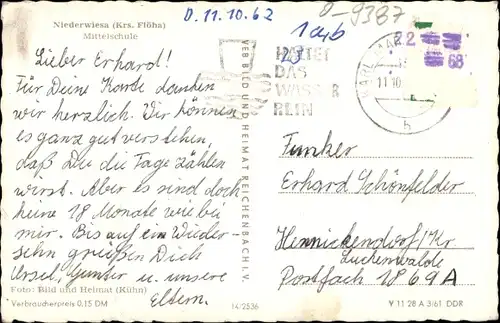 D. 11.10.62
8-9387
Niederwiesa (Krs. Flöha)
Mittelschule
Lieber Erhard!
Für Deine Karte danken
wir herzlich. Wir können
es ganz gut verstehen,
daß Du die Tage zählen
wirst. Aber es sind doch
keine 18 Monate wie bei
mir. Bis auf ein Wieder-
sehn grüßen Dich
Ursel, Günter u. unsere
Eltern.
Foto: Bild und Heimat (Kühn)
Verbraucherpreis 0,15 DM
14/2536
VEB BILD UND HEIMAT REICHENBACH I. V.
HALTET
DAS
WASSER
REIN
KARL-MARX
11.10.
h
22
68
Funker
Erhard Schönfelder
Hennickendorf/Kr
Luckenwalde
Postfach 1869 A
V 11 28 A 3/61 DDR